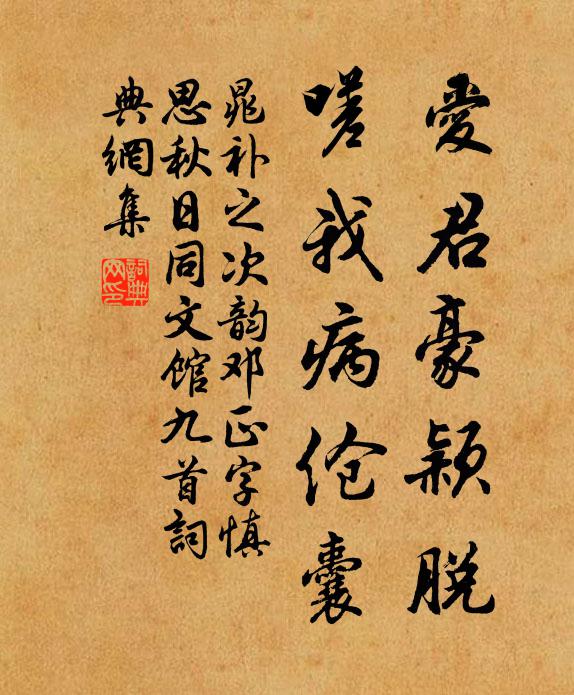 愛君豪颖脱
嗟我病伧囊
晁补之次韵邓正字慎
思秋日同文馆九首詞
典網集
詞典網印